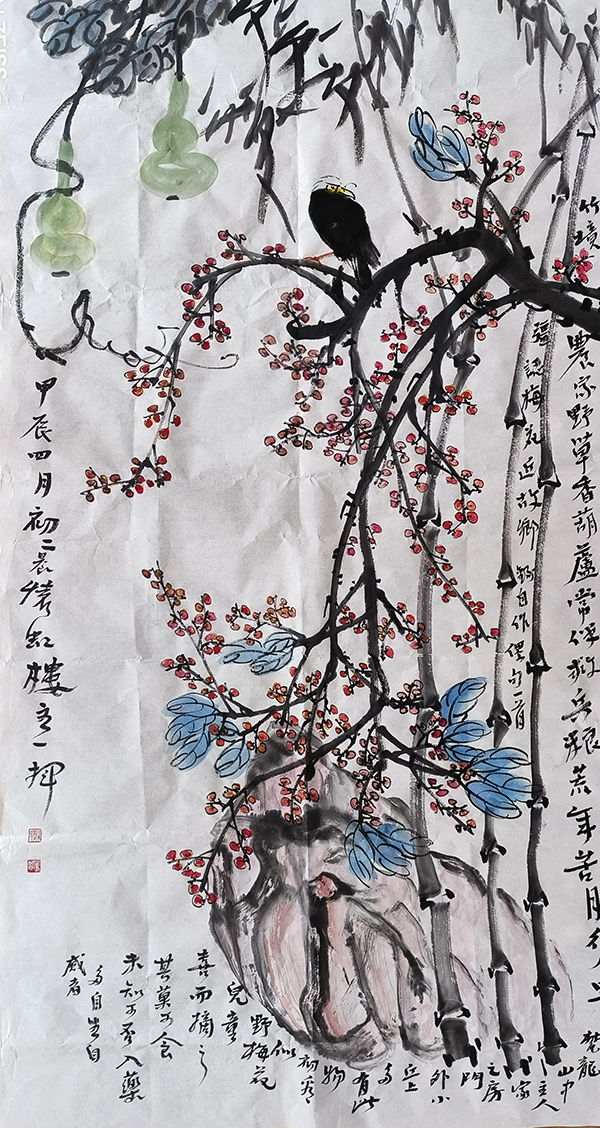 竹境
農家野草香葫蘆常伴救兵粮荒年苦月行人上
認梅花近故鄉 自作俚句一首
楚龍
山中
主人
家
之房
門
外小
丘上
多
有此
物
初看
似
野梅花
兒童
喜而摘之
其菓可食
未知可否入藥
多自生自
滅者
甲辰四月初二晨倚虹樓主一輝